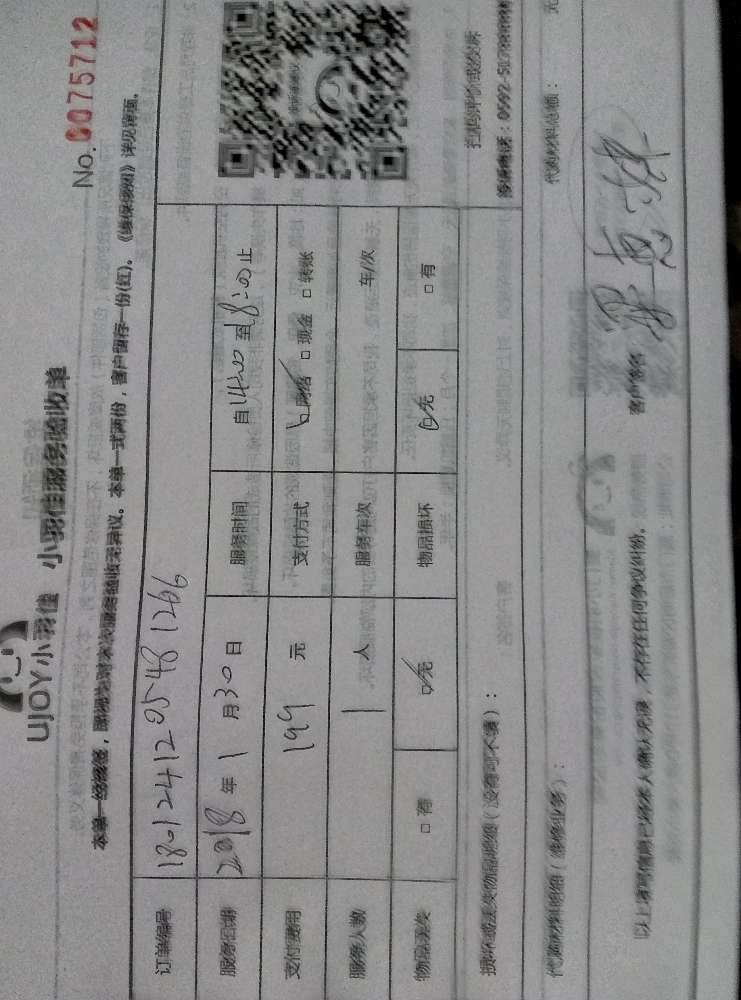 No.0075712
UJOY小羽佳 小羽佳服务验收单
本单一经签名,即视为对本次服务验收无异议。本单一式两份,客户留存一份(红)。《维保细则》详见背面。
订单编号 180124120548 1266
服务日期 2018年1月30日 服务时间 自14:00至18:00止
支付费用 199元 支付方式 网络 □现金 □转账
服务人数 1人 服务车次 车/次
物品丢失 □有 □无 物品损坏 □无 □有
扫码评价或投诉
损坏或丢失物品明细(没有可不填):
代购材料明细(维修业务): 代购材料总额: 元
以上填写信息已经本人确认无误,不存在任何争议纠纷。 客户签名: